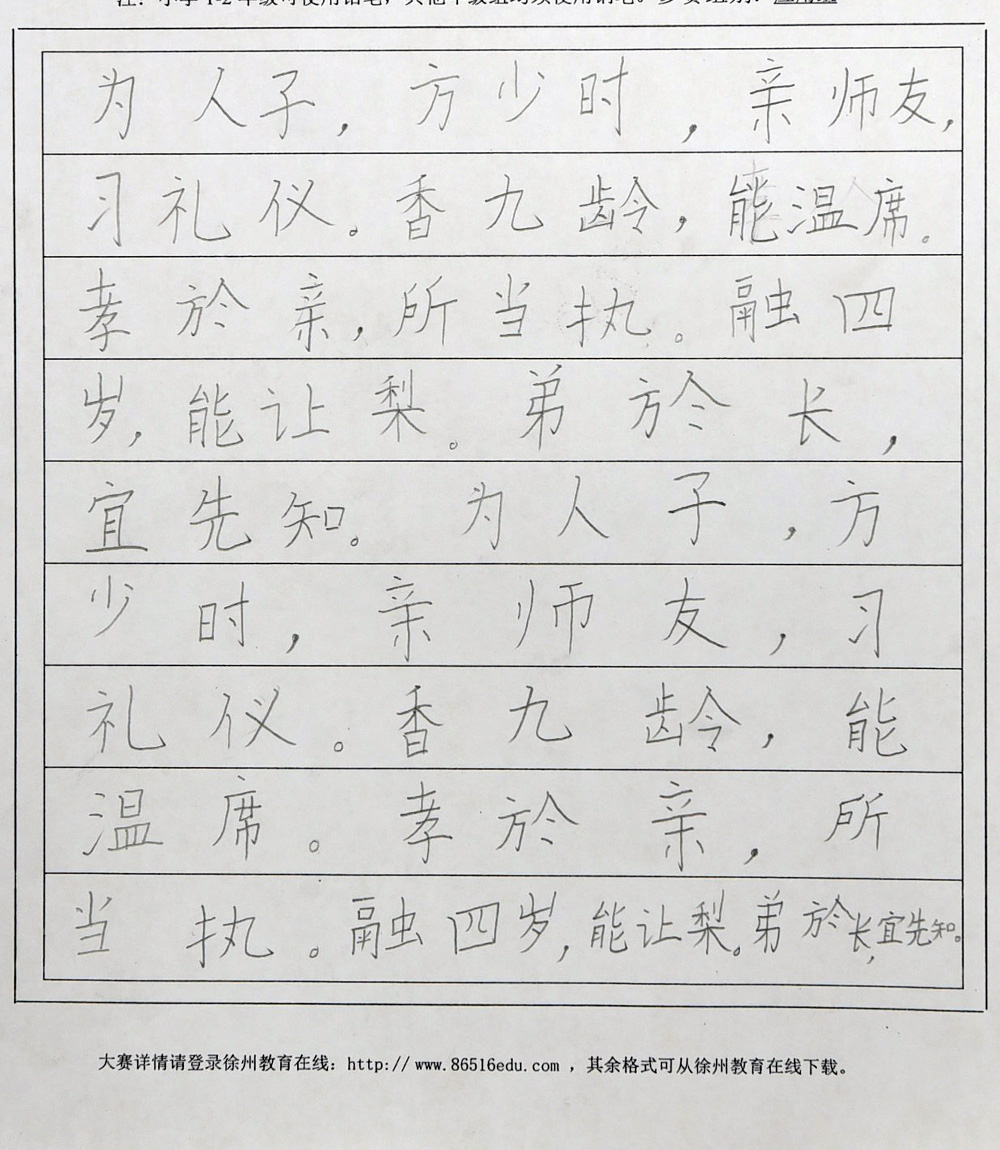 为人子，方少时，亲师友，
习礼仪。香九龄，能温席。
孝於亲，所当执。融四
岁，能让梨。弟於长，
宜先知。为人子，方
少时，亲师友，习
礼仪。香九龄，能
温席。孝於亲，所
当执。融四岁，能让梨。弟於长，宜先知。
大赛详情请登录徐州教育在线：http://www.86516edu.com，其余格式可从徐州教育在线下载。